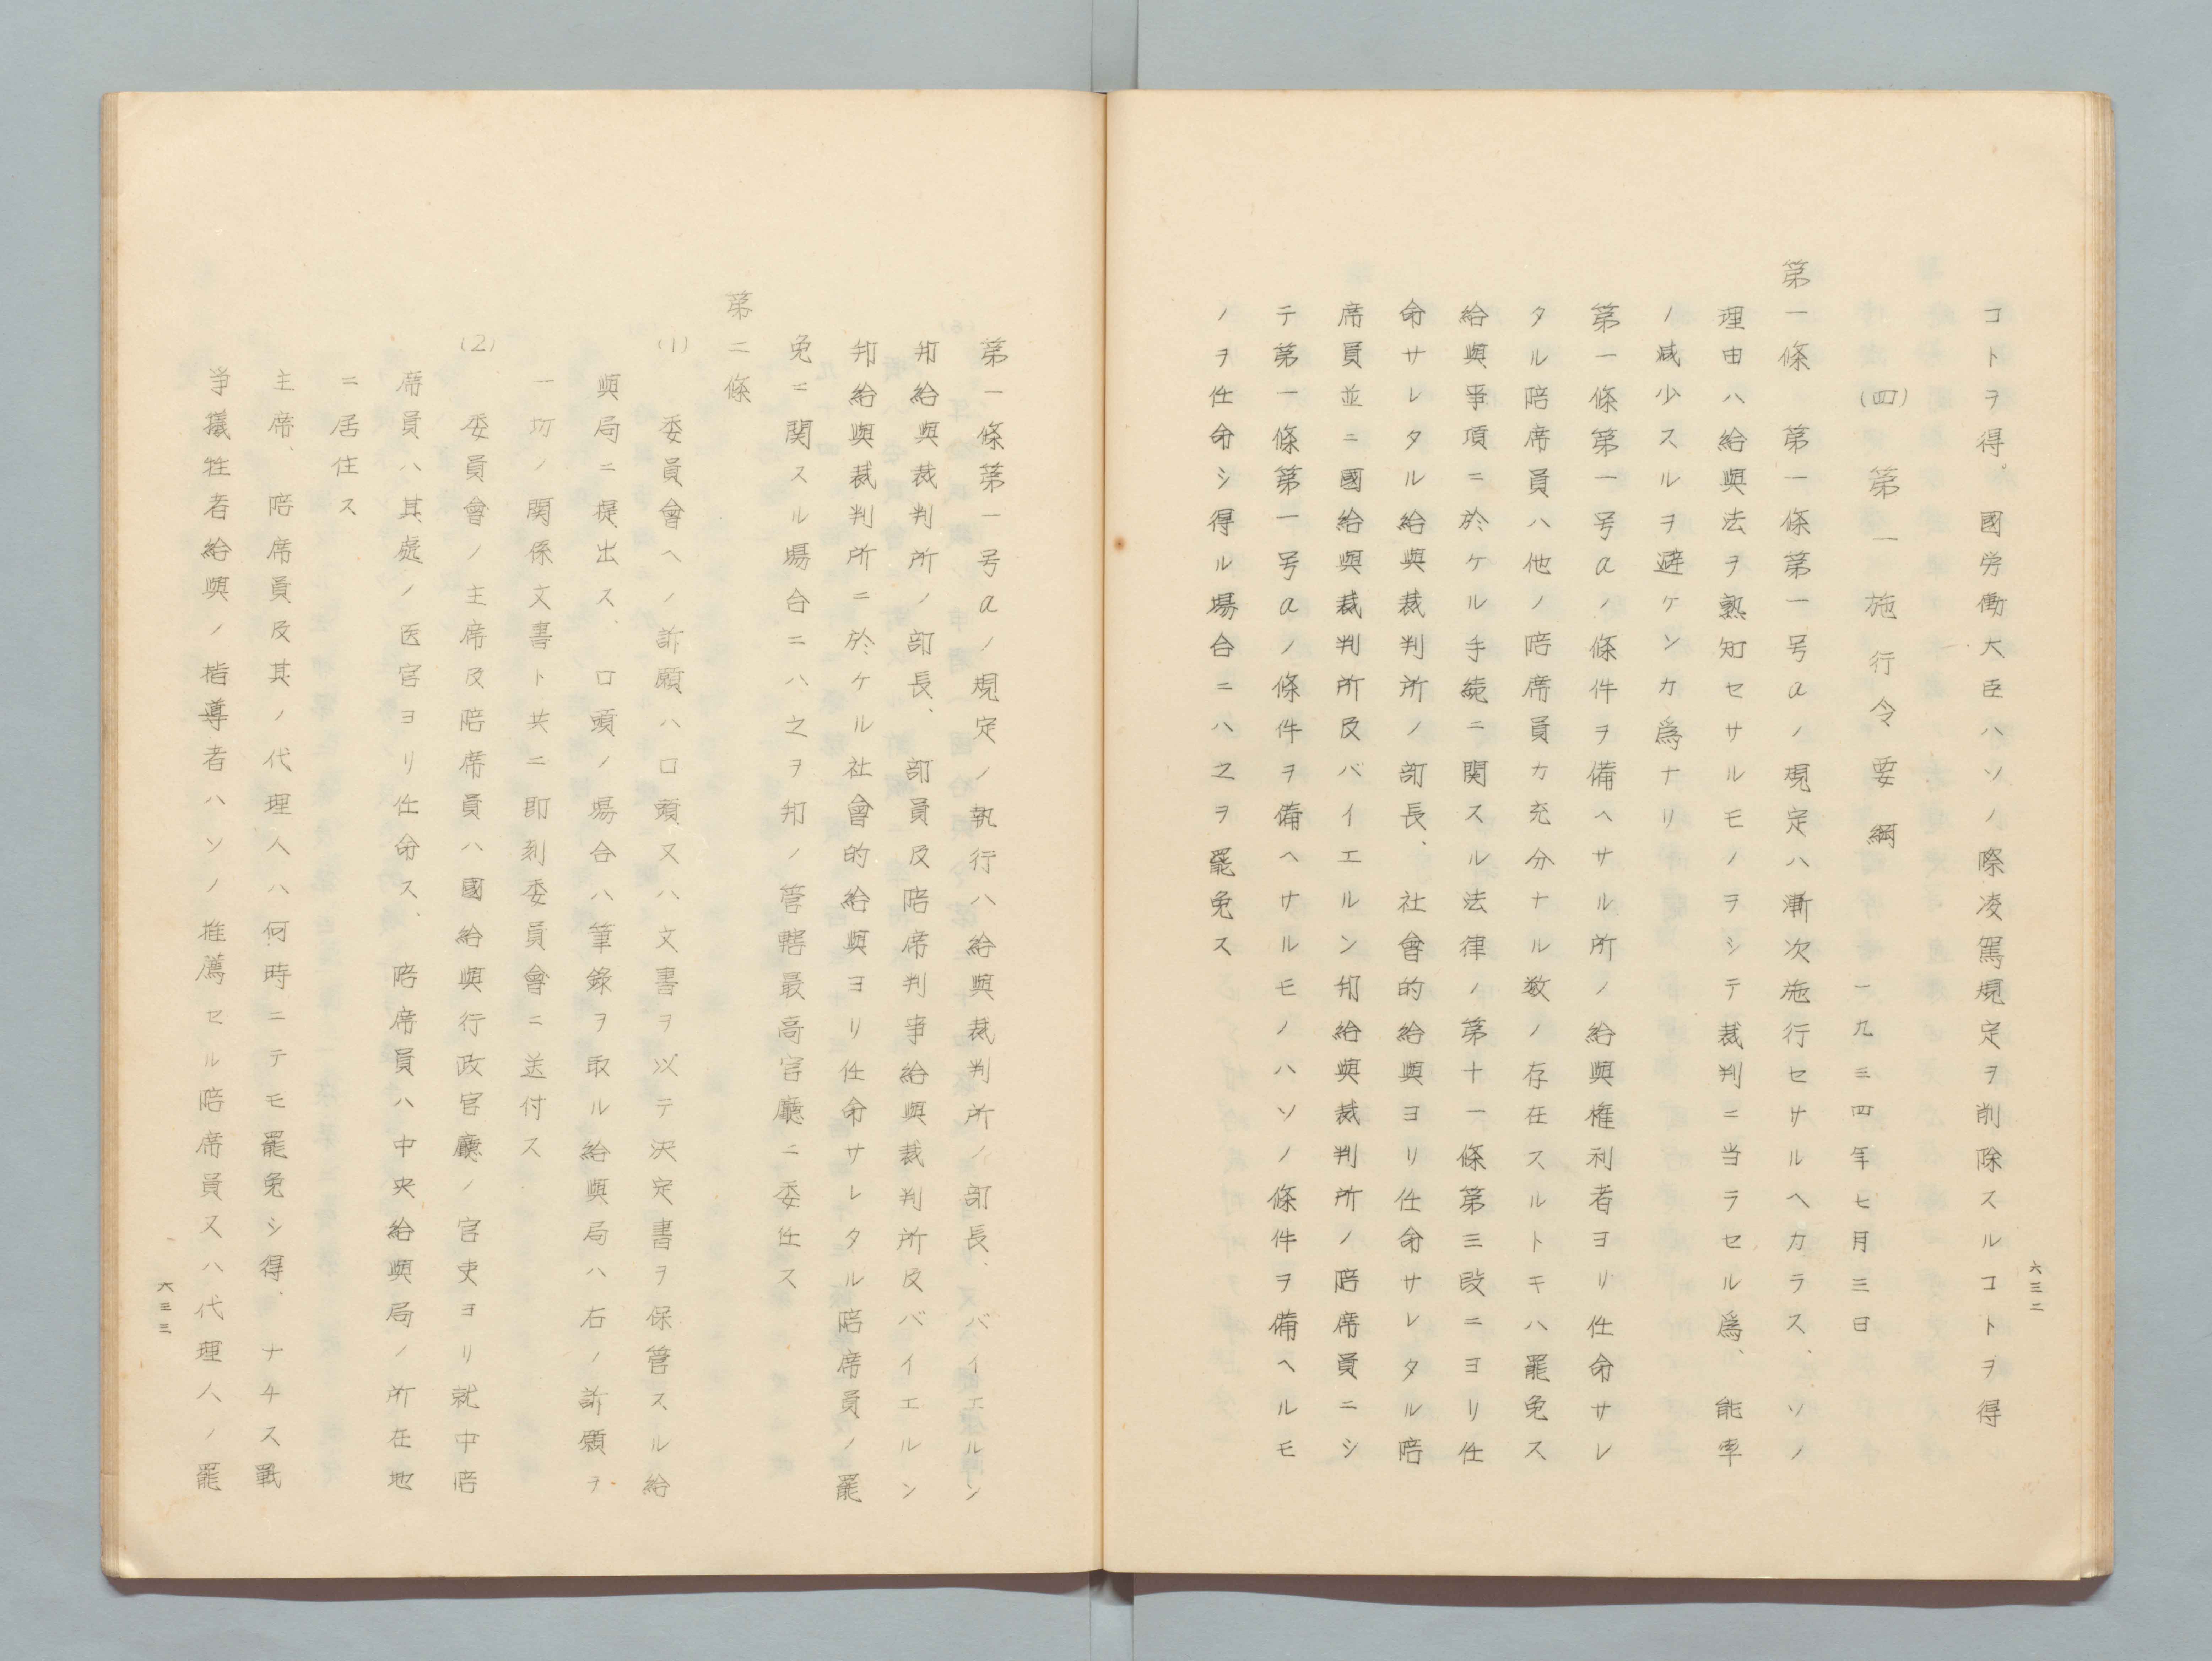 コトヲ得。國労働大臣ハソノ際凌駕規定ヲ削除スルコトヲ得
(四)第一施行令要綱
一九三四年七月三日
第一條 第一條第一号aノ規定ハ漸次施行セサルヘカラス、ソノ
理由ハ給與法ヲ熟知セサルモノヲシテ裁判ニ当ラセル爲、能率
ノ減少スルヲ避ケンカ爲ナリ
第一條第一号aノ條件ヲ備ヘサル所ノ給與権利者ヨリ任命サレ
タル陪席員ハ他ノ陪席員カ充分ナル数ノ存在スルトキハ罷免ス
給與事項ニ於ケル手続ニ関スル法律ノ第十一條第三段ニヨリ任
命サレタル給與裁判所ノ部長、社會的給與ヨリ任命サレタル陪
席員並ニ國給與裁判所及バイエルン邦給與裁判所ノ陪席員ニシ
テ第一條第一号aノ條件ヲ備ヘサルモノハソノ條件ヲ備ヘルモ
ノヲ任命シ得ル場合ニハ之ヲ罷免ス
六三二
第一條第一号aノ規定ノ執行ハ給與裁判所ノ部長、バイエルン
邦給與裁判所ノ部長、部員及陪席判事給與裁判所及バイエルン
邦給與裁判所ニ於ケル社會的給與ヨリ任命サレタル陪席員ノ罷
免ニ関スル場合ニハ之ヲ邦ノ管轄最高官廳ニ委任ス
第二條
(1) 委員會ヘノ訴願ハ口頭又ハ文書ヲ以テ決定書ヲ保管スル給
與局ニ提出ス、口頭ノ場合ハ筆錄ヲ取ル給與局ハ右ノ訴願ヲ
一切ノ関係文書ト共ニ即刻委員會ニ送付ス
(2) 委員會ノ主席及陪席員ハ國給與行政官廳ノ官吏ヨリ就中陪
席員ハ其處ノ医官ヨリ任命ス、陪席員ハ中央給與局ノ所在地
ニ居住ス
主席、陪席員及其ノ代理人ハ何時ニテモ罷免シ得、ナチス戰
争犠牲者給與ノ指導者ハソノ推薦セル陪席員又ハ代理人ノ罷
六三三